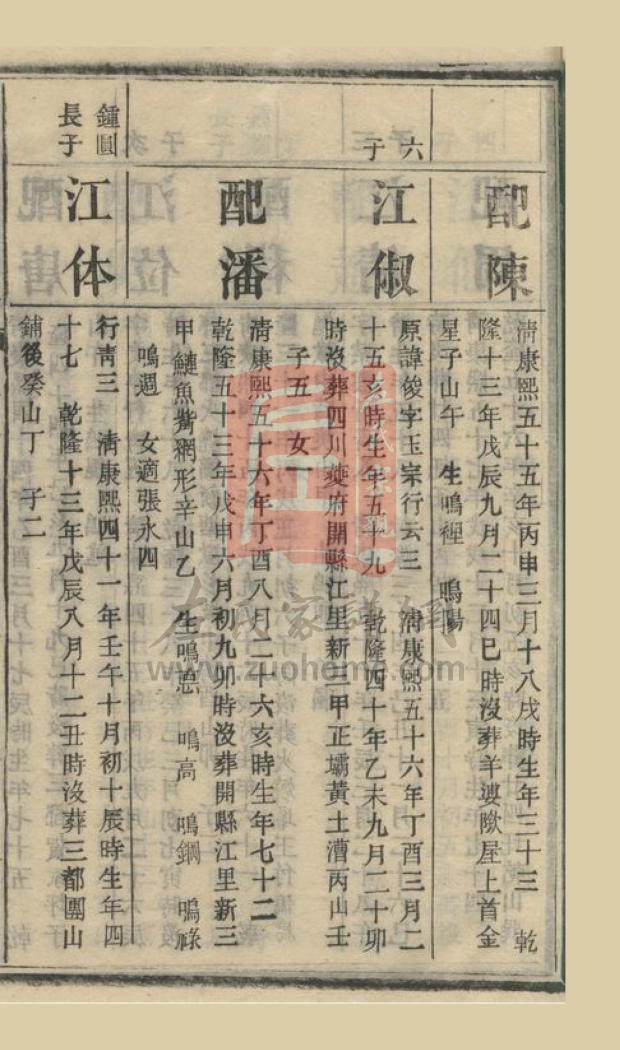 配陳
清康熙五十五年丙申三月十八戌時生年三十三　乾
隆十三年戊辰九月二十四巳時沒葬羊婆㘭屋上首金
星子山午　生鳴裡　鳴陽
六
子
江俶
原諱俊字玉宗行云三　清康熙五十六年丁酉三月二
十五亥時生年五十九　乾隆四十年乙未九月二十卯
時沒葬四川夔府開縣江里新三甲正壩黃土漕丙山壬
子五　女一
配潘
清康熙五十六年丁酉八月二十六亥時生年七十二
乾隆五十三年戊申六月初九卯時沒葬開縣江里新三
甲鰱魚觜網形辛山乙　生鳴　鳴高　鳴鋼　鳴祿
鳴週　女適張永四
鍾圓
長子
江体
行青三　清康熙四十一年壬午十月初十辰時生年四
十七　乾隆十三年戊辰八月十二丑時沒葬三都團山
鋪後癸山丁　子二
左氏家譜網
www.zuohome.com